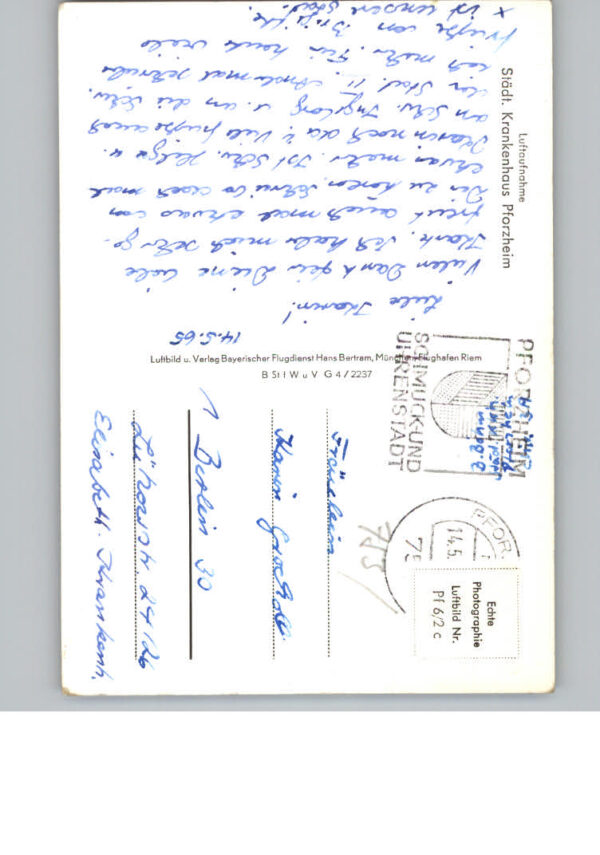 Luftaufnahme
Städt. Krankenhaus Pforzheim
14.5.65
Liebe Karin!
Vielen Dank für Deine liebe
Karte. Ich habe mich sehr ge-
freut auch mal etwas von
Dir zu hören. Schreibe doch mal
etwas mehr. Ist Schw. Helga u.
Karin noch da? Viel Grüße auch
an Schw. Ingeborg u. an die Schw.
der Stat. 11. Andermal schreibe
ich mehr. Für heute viele
Grüße von Brigitte
x ist unsere Stat.
Luftbild u. Verlag Bayerischer Flugdienst Hans Bertram, München-Flughafen Riem
B St f W u V G 4/2237
PFORZHEIM
SCHMUCK UND
UHRENSTADT
PFOR
14.5.
75
Echte
Photographie
Luftbild Nr.
Pf 6/2 c
753
Fräulein
Karin
1 Berlin 30
Lützowstr. 24/26
Elisabeth-Krankenh.